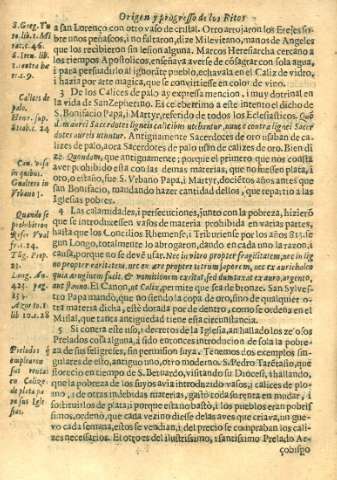 Origen y progresso de los Ritos
a san Lorenço con otro vaso de cristal. Otro arrojaron los Erejes so-
bre unos peñascos, i no saltaron, dize Milevitano, manos de Angeles
que los recibieron sin lesion alguna. Marcos Heresiarcha cercano a
los tiempos Apostolicos, enseñava averse de cõsagrar con sola agua,
i para persuadirlo al ignorāte pueblo, echavala en el Caliz de vidro,
i hazia por arte magica, que se convirtiesse en color de vino.
3 De los Calices de palo ay expressa mencion, i muy dotrinal en
la vida de San Zepherino. Es celeberrimo a este intento el dicho de
S. Bonifacio Papa, i Martyr, referido de todos los Eclesiasticos. Quõ
dam aurei Sacerdotes ligneis calicibus utebantur, nunc è contra lignei Sacer
dotes aureis utuntur. Antiguamente Sacerdotes de oro usaban de ca-
lizes de palo, aora Sacerdotes de palo usan de calizes de oro. Bien di
ze Quondam, que antiguamente; porque el primero que nos consta
aver prohibido esta con las demas materias, que no fuessen plata, i
oro, o estaño, fue S. Vrbano Papa, i Martyr, deziocho años antes que
san Bonifacio, mandando hazer cantidad dellos, que repartiò a las
Iglesias pobres.
4 Las calamidades, i persecuciones, junto con la pobreza, hizierõ
que se introduxessen vasos de materia prohibida en varias partes,
hasta que los Concilios Rhemense, i Triburiense por los años 813. se
gun Longo, totalmente lo abrogaron, dando en cada uno la razon, i
causa, porque no se devè usar. Nec in vitro propter fragilitatem, nec in lig
no propter raritatem, nec ex ære propter tetrum saporem, nec ex aurichalco
quia æruginem facit. Et vomitionem excitat, sed dumtaxat ex auro, argento,
aut stanno. El Canon, ut Caliz, permite que sea de bronze. San Sylves-
tro Papa mandò, que no siendo la copa de oro, sino de qualquier o-
tra materia dicha, estè dorada por de dentro, como se ordena en el
Missal, que tanta antiguedad tiene esta circunstancia.
5 Si contra este uso, i decretos de la Iglesia, an hallado los zelosos
Prelados cosa alguna, à sido entonces introducion de sola la pobre
za de sus feligreses, sin permission suya. Tenemos dos exemplos sin-
gulares de esto, antiguo uno, otro moderno. S. Pedro Tarētasio, que
florecio en tiempo de S. Bernardo, visitando su Diocesi, i hallando,
que la pobreza de los suyos avia introduzido vasos, i calices de plo-
mo, i de otras indebidas materias, gastò toda su renta en mudar, i
sostituirlos de plata; i porque esta no bastò, i los pueblos eran pobris
simos, ordenò, que cada vezino diesse de las aves que criava, un gue-
vo cada semana, estos se vendian, i del precio se compraban los cali-
zes necessarios. El otro es del ilustrissimo, i santissimo Prelado Ar-
çobispo
S. Greg. Tu
Calices de
palo.
Quando se
prohibieron
Prelados q